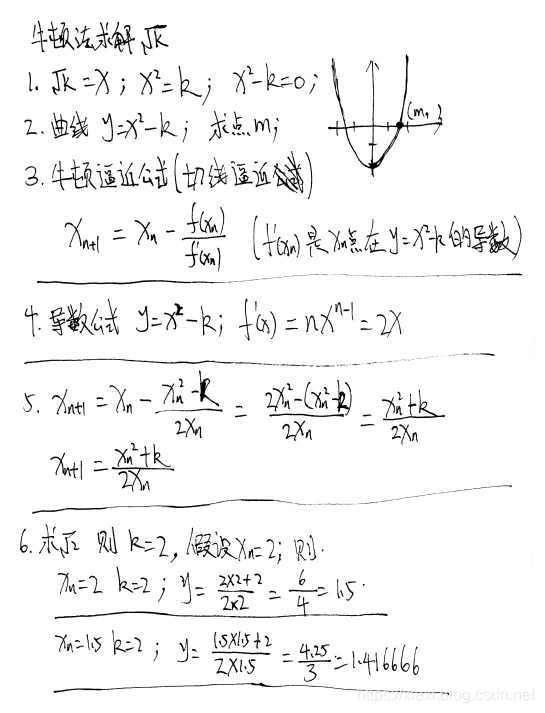 牛顿法求解√k
1. √k = x ; x²=k ; x²-k=0 ;
(m, )
2. 曲线 y=x²-k ; 求点m;
3. 牛顿逼近公式(切线逼近)
xₙ₊₁ = xₙ - f(xₙ)/f'(xₙ) (f'(xₙ)是xₙ点在y=x²-k的导数)
4. 导数公式 y=x²-k ; f'(x) = nxⁿ⁻¹ = 2x
5. xₙ₊₁ = xₙ - (xₙ²-k)/2xₙ = (2xₙ²-(xₙ²-k))/2xₙ = (xₙ²+k)/2xₙ
xₙ₊₁ = (xₙ²+k)/2xₙ
6. 求√2 则 k=2, 假设xₙ=2; 则.
xₙ=2 k=2 ; y= (2×2+2)/(2×2) = 6/4 = 1.5.
xₙ=1.5 k=2 ; y= (1.5×1.5+2)/(2×1.5) = 4.25/3 = 1.416666
https://xiaxl.blog.csdn.net